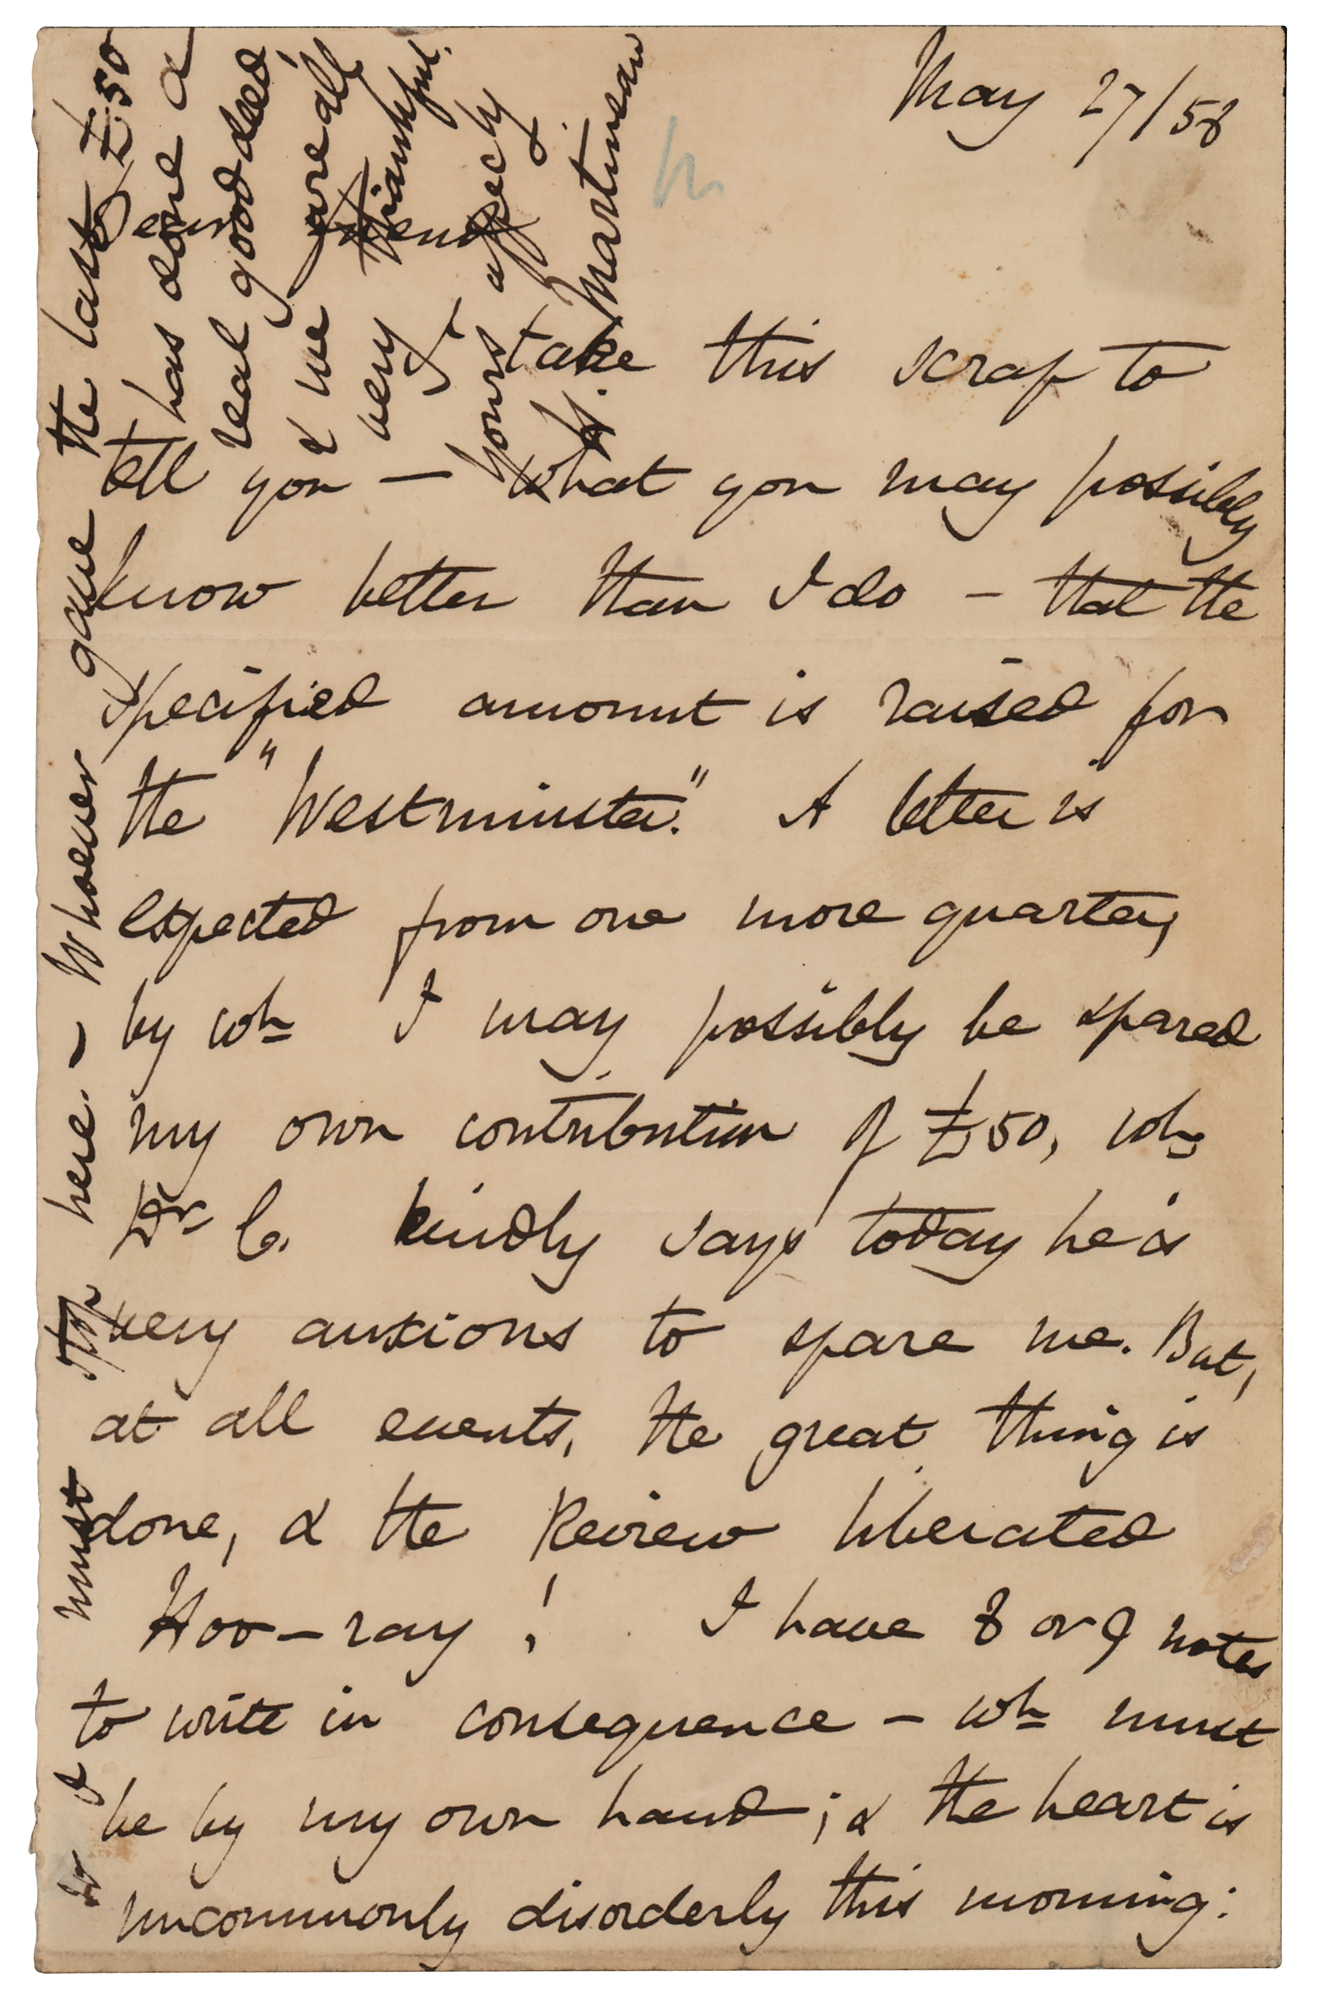 May 27/58
Dear Friend
I take this scrap to
tell you – what you may possibly
know better than I do – that the
specified amount is raised for
the "Westminster." A letter is
expected from one more quarter,
by wh I may possibly be spared
my own contribution of £50, wh
Dr C. kindly says today he is
very anxious to spare me. But,
at all events, the great thing is
done, & the Review liberated
Hoo-ray! I have 8 or 9 notes
to write in consequence – wh must
be by my own hand; & the heart is
uncommonly disorderly this morning:
so I must stop here. – Whoever gave the last £50
has done a
real good deed,
& we are all
very thankful.
Yours affecly
H. Martineau